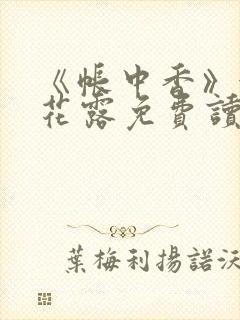 《帳中香》
花露免費讀
葉梅利揚諾沃